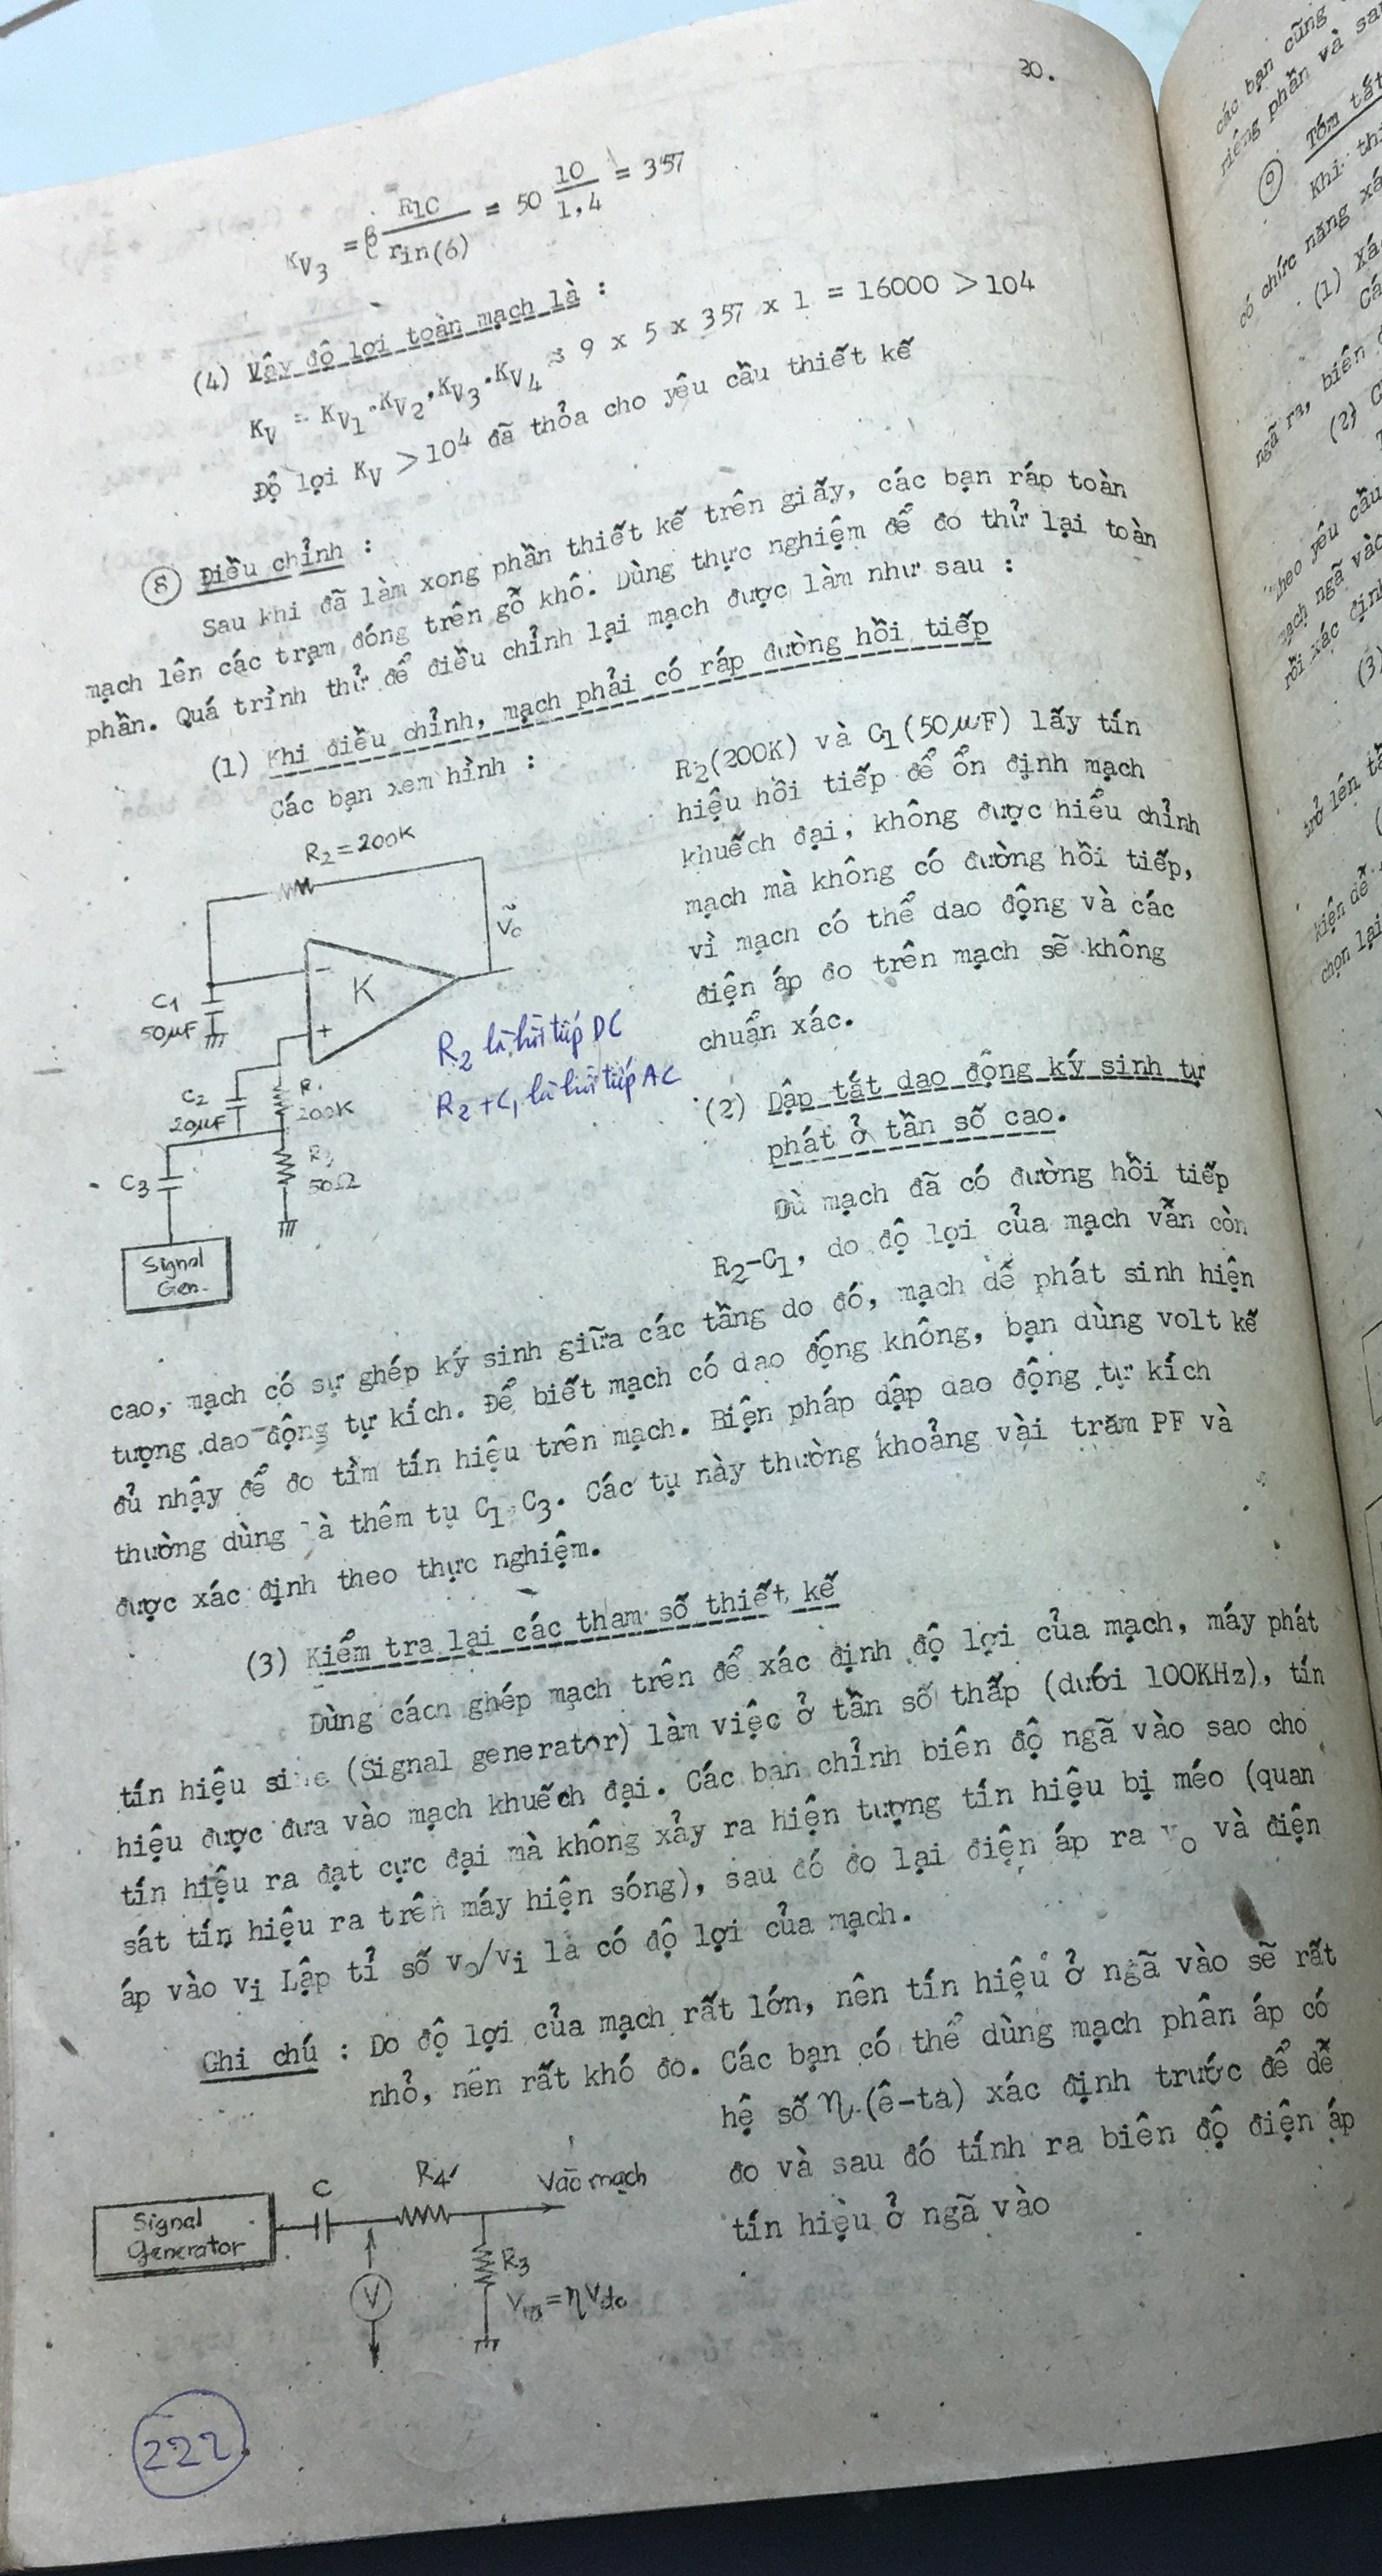 20.
KV3 = β R10 / rin(6) = 50 10 / 1,4 = 357
(4) Vậy độ lợi toàn mạch là :
KV = KV1.KV2.KV3.KV4 ≈ 9 x 5 x 357 x 1 = 16000 > 10⁴
Độ lợi KV > 10⁴ đã thỏa cho yêu cầu thiết kế
(8) Điều chỉnh :
Sau khi đã làm xong phần thiết kế trên giấy, các bạn ráp toàn
mạch lên các trạm đóng trên gỗ khô. Dùng thực nghiệm để đo thử lại toàn
phần. Quá trình thử để điều chỉnh lại mạch được làm như sau :
(1) Khi điều chỉnh, mạch phải có ráp đường hồi tiếp
Các bạn xem hình :
R2 = 200K
ṽo
K
−
+
C1
50µF
C2
20µF
R1
200K
C3
R3
50Ω
Signal
Gen.
R2 là hồi tiếp DC
R2 + C1 là hồi tiếp AC
R2(200K) và C1(50µF) lấy tín
hiệu hồi tiếp để ổn định mạch
khuếch đại, không được hiểu chỉnh
mạch mà không có đường hồi tiếp,
vì mạch có thể dao động và các
điện áp đo trên mạch sẽ không
chuẩn xác.
(2) Dập tắt dao động ký sinh tự
phát ở tần số cao.
Dù mạch đã có đường hồi tiếp
R2-C1, do độ lợi của mạch vẫn còn
cao, mạch có sự ghép ký sinh giữa các tầng do đó, mạch dễ phát sinh hiện
tượng dao động tự kích. Để biết mạch có dao động không, bạn dùng volt kế
đủ nhậy để đo tìm tín hiệu trên mạch. Biện pháp dập dao động tự kích
thường dùng là thêm tụ C1 C3. Các tụ này thường khoảng vài trăm PF và
được xác định theo thực nghiệm.
(3) Kiểm tra lại các tham số thiết kế
Dùng cách ghép mạch trên để xác định độ lợi của mạch, máy phát
tín hiệu sine (Signal generator) làm việc ở tần số thấp (dưới 100KHz), tín
hiệu được đưa vào mạch khuếch đại. Các bạn chỉnh biên độ ngã vào sao cho
tín hiệu ra đạt cực đại mà không xảy ra hiện tượng tín hiệu bị méo (quan
sát tín hiệu ra trên máy hiện sóng), sau đó đo lại điện áp ra vo và điện
áp vào vi Lập tỉ số vo/vi là có độ lợi của mạch.
Ghi chú : Do độ lợi của mạch rất lớn, nên tín hiệu ở ngã vào sẽ rất
nhỏ, nên rất khó đo. Các bạn có thể dùng mạch phân áp có
hệ số η (ê-ta) xác định trước để dễ
đo và sau đó tính ra biên độ điện áp
tín hiệu ở ngã vào
Signal
Generator
C
R4
Vào mạch
V
R3
= ηVđo
222
các bạn cũng
riêng phần và
(9) Tóm tắt
Khi
có chức năng
(1)
ngã ra, biên
(2)
theo yêu cầu
mạch ngã vào
rồi xác định
(3)
trở lên
kiện để
chọn lại